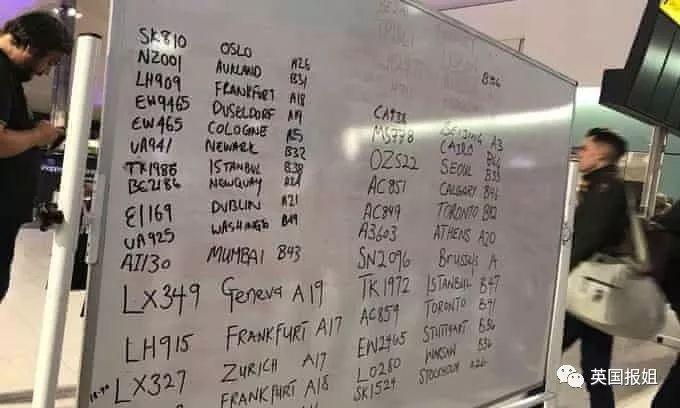 SK810 OSLO A26
NZ001 AUKLAND B31
LH909 FRANKFURT A18
EW9465 DUSELDORF A9
EW465 COLOGNE A5
UA941 NEWARK B32
TK1986 ISTANBUL B38
BE2186 NEWQUAY A24
EI169 DUBLIN A21
UA925 WASHINGTO B49
AI130 MUMBAI B43
LX349 Geneva A19
LH915 FRANKFURT A17
LX327 ZURICH A17
FRANKFURT A18
B36
CA938 BEIJING A3
MS778 CAIRO B44
OZ522 SEOUL B35
AC851 CALGARY B46
AC849 TORONTO B42
A3603 ATHENS A20
SN2096 Brussels A
TK1972 ISTANBUL B47
AC859 TORONTO B41
EW2465 STUTTGART B36
LO280 WARSAW B36
SK1529 STOCKHOLM A26
英国报姐